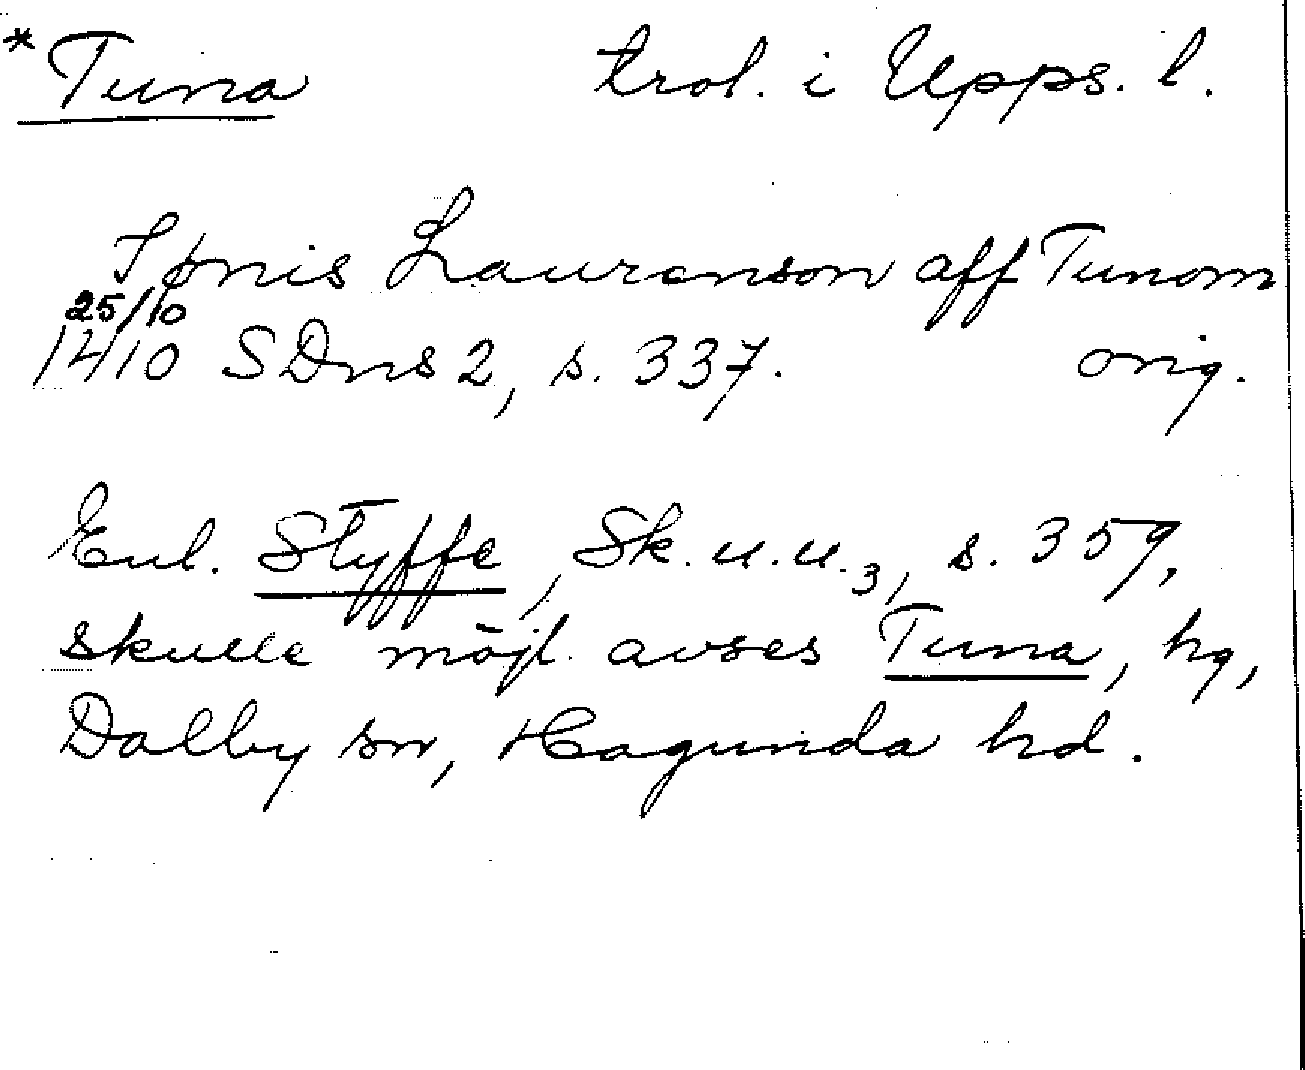 *Tuna trol. i Upps. l.
Jønis Laurenson aff Tunom
25/10
1410 SDns 2, s. 337. orig.
Enl. Styffe, Sk.u.u.3, s. 359,
skulle möjl. avses Tuna, hg,
Dalby sn, Hagunda hd.